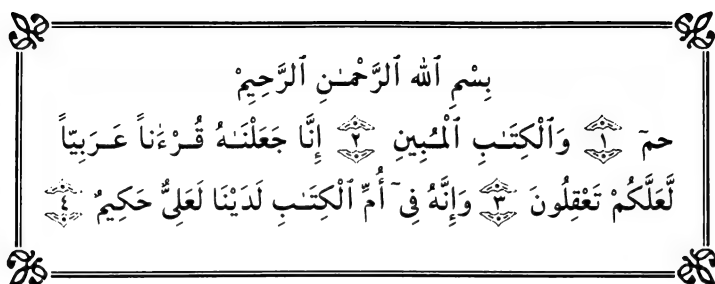 بِسْمِ ٱللَّه ٱلرَّحْمَـٰنِ ٱلرَّحِيمِْ
حمٓ ١ وَٱلْكِتَـٰبِ ٱلْمُبِينِ ٢ إِنَّا جَعَلْنَـٰهُ قُرْءَٰناً عَرَبِيّاً
لَّعَلَّكُمْ تَعْقِلُونَ ٣ وَإِنَّهُ فِىٓ أُمِّ ٱلْكِتَـٰبِ لَدَيْنَا لَعَلِىٌّ حَكِيمٌ ٤